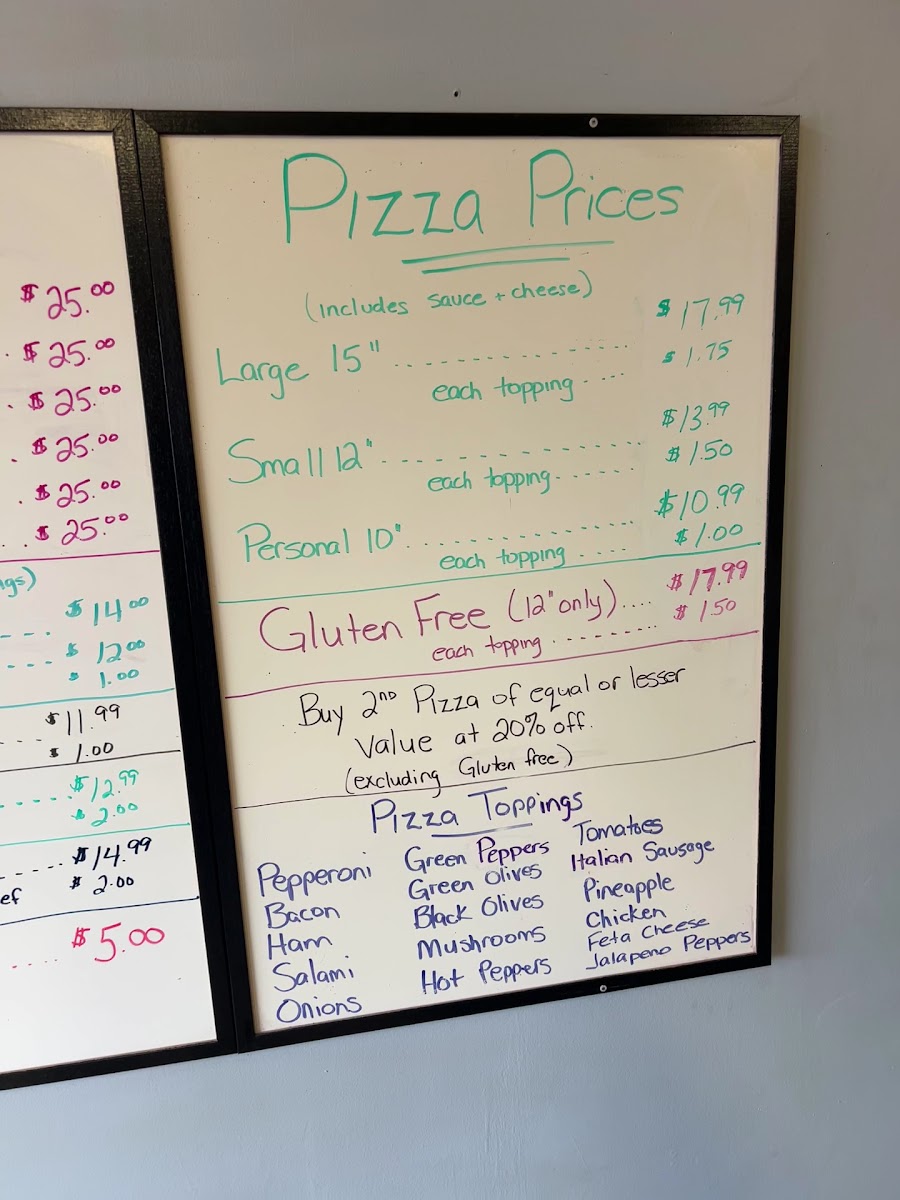 $25.00
. $25.00
. $25.00
. $25.00
. $25.00
. . $25.00
ngs)
---. $14.00
---. $12.00
$1.00
..... $11.99
$1.00
----. $12.99
$2.00
....... $14.99
ef $2.00
.... $5.00
Pizza Prices
(includes sauce + cheese)
Large 15" .................. $17.99
each topping ..... $1.75
Small 12" .................. $13.99
each topping ........ $1.50
Personal 10" .................. $10.99
each topping ..... $1.00
Gluten Free (12" only).... $17.99
each topping .......... $1.50
Buy 2nd Pizza of equal or lesser
Value at 20% off.
(excluding Gluten free)
Pizza Toppings
Pepperoni
Bacon
Ham
Salami
Onions
Green Peppers
Green Olives
Black Olives
Mushrooms
Hot Peppers
Tomatoes
Italian Sausage
Pineapple
Chicken
Feta Cheese
Jalapeno Peppers